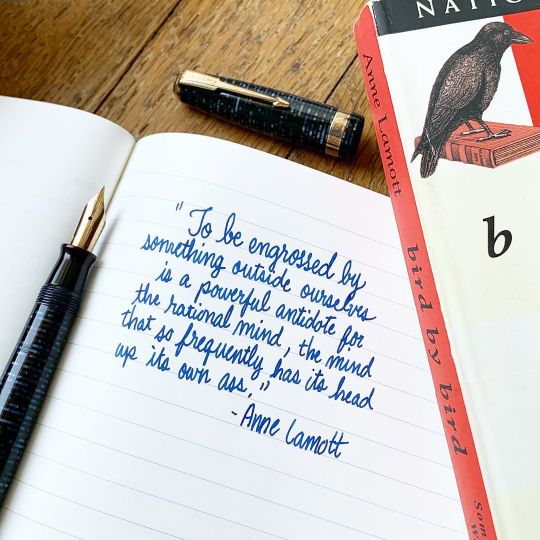 "To be engrossed by
something outside ourselves
is a powerful antidote for
the rational mind, the mind
that so frequently has its head
up its own ass."
- Anne Lamott
NATIO
Anne Lamott
bird by bird
Som
b